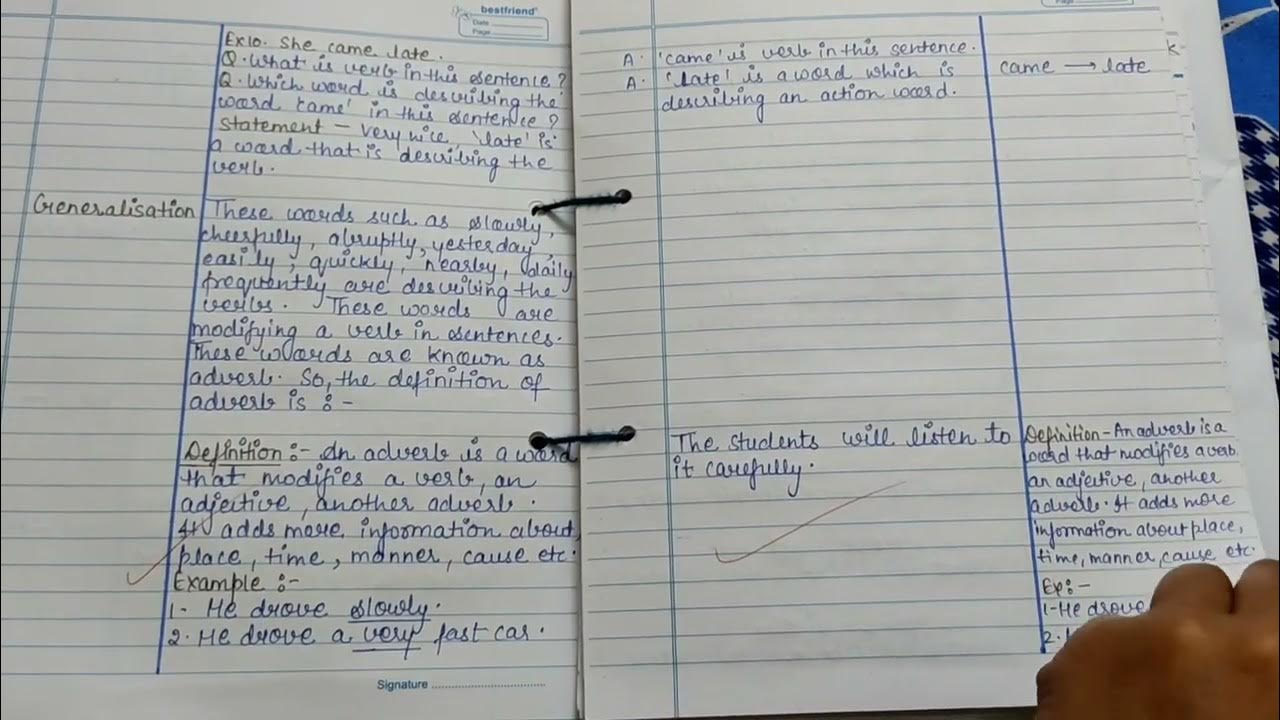 bestfriend
Date
Page
Ex10. She came late.
Q. What is verb in this sentence?
Q. Which word is describing the
word 'came' in this sentence?
Statement - Very nice, 'late' is
a word that is describing the
verb.
Generalisation
These words such as slowly,
cheerfully, abruptly, yesterday,
easily, quickly, nearby, daily
frequently are describing the
verbs. These words are
modifying a verb in sentences.
These words are known as
adverb. So, the definition of
adverb is :-
Definition :- An adverb is a word
that modifies a verb, an
adjective, another adverb.
It adds more information about
place, time, manner, cause etc.
Example :-
1- He drove slowly.
2. He drove a very fast car.
Signature
Page
A. 'came' is verb in this sentence.
A. 'late' is a word which is
describing an action word.
The students will listen to
it carefully.
came → late
Definition - An adverb is a
word that modifies a verb,
an adjective, another
adverb. It adds more
information about place,
time, manner, cause etc.
Ex:-
1-He drove
2.
k